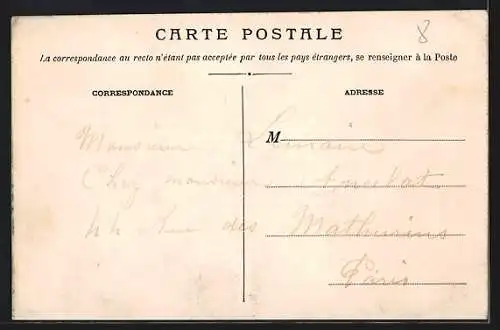 CARTE POSTALE
8
La correspondance au recto n'étant pas acceptée par tous les pays étrangers, se renseigner à la Poste
CORRESPONDANCE
ADRESSE
M
Monsieur Lemaire
Chez monsieur
44 Rue des Mathurins
Paris